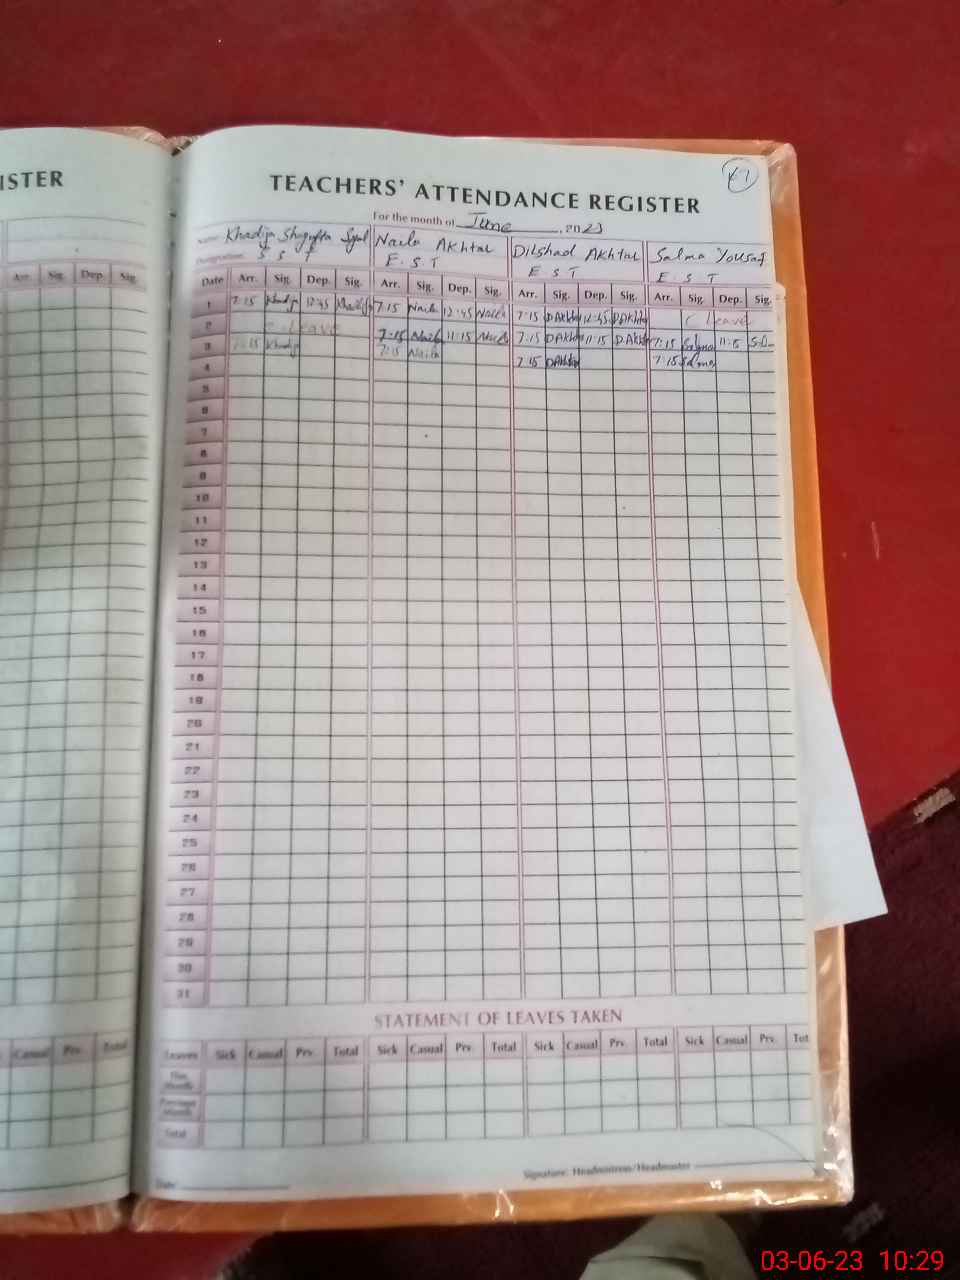 ISTER
Arr. Sig. Dep. Sig.
Casual Prv. Total
67
TEACHERS' ATTENDANCE REGISTER
For the month of June, 2023
Name Khadija Shgufta Syal Naila Akhtar Dilshad Akhtar Salma Yousaf
Designation S S T E. S. T E S T E. S. T
Date Arr. Sig. Dep. Sig. Arr. Sig. Dep. Sig. Arr. Sig. Dep. Sig. Arr. Sig. Dep. Sig.
1 7:15 Khadija 12:45 Khadija 7:15 Naila 12:45 Naila 7:15 DAkhtar 12:45 DAkhtar C Leave
2 C. Leave 7:15 Naila 11:15 Naila 7:15 DAkhtar 11:15 DAkhtar 7:15 Salma 11:15 Salma
3 7:15 Khadija 7:15 Naila 7:15 DAkhtar 7:15 Salma
4
5
6
7
8
9
10
11
12
13
14
15
16
17
18
19
20
21
22
23
24
25
26
27
28
29
30
31
STATEMENT OF LEAVES TAKEN
Leaves Sick Casual Prv. Total Sick Casual Prv. Total Sick Casual Prv. Total Sick Casual Prv. Tot
This Month
Previous Month
Total
Signature: Headmistress/Headmaster
Date:
03-06-23 10:29